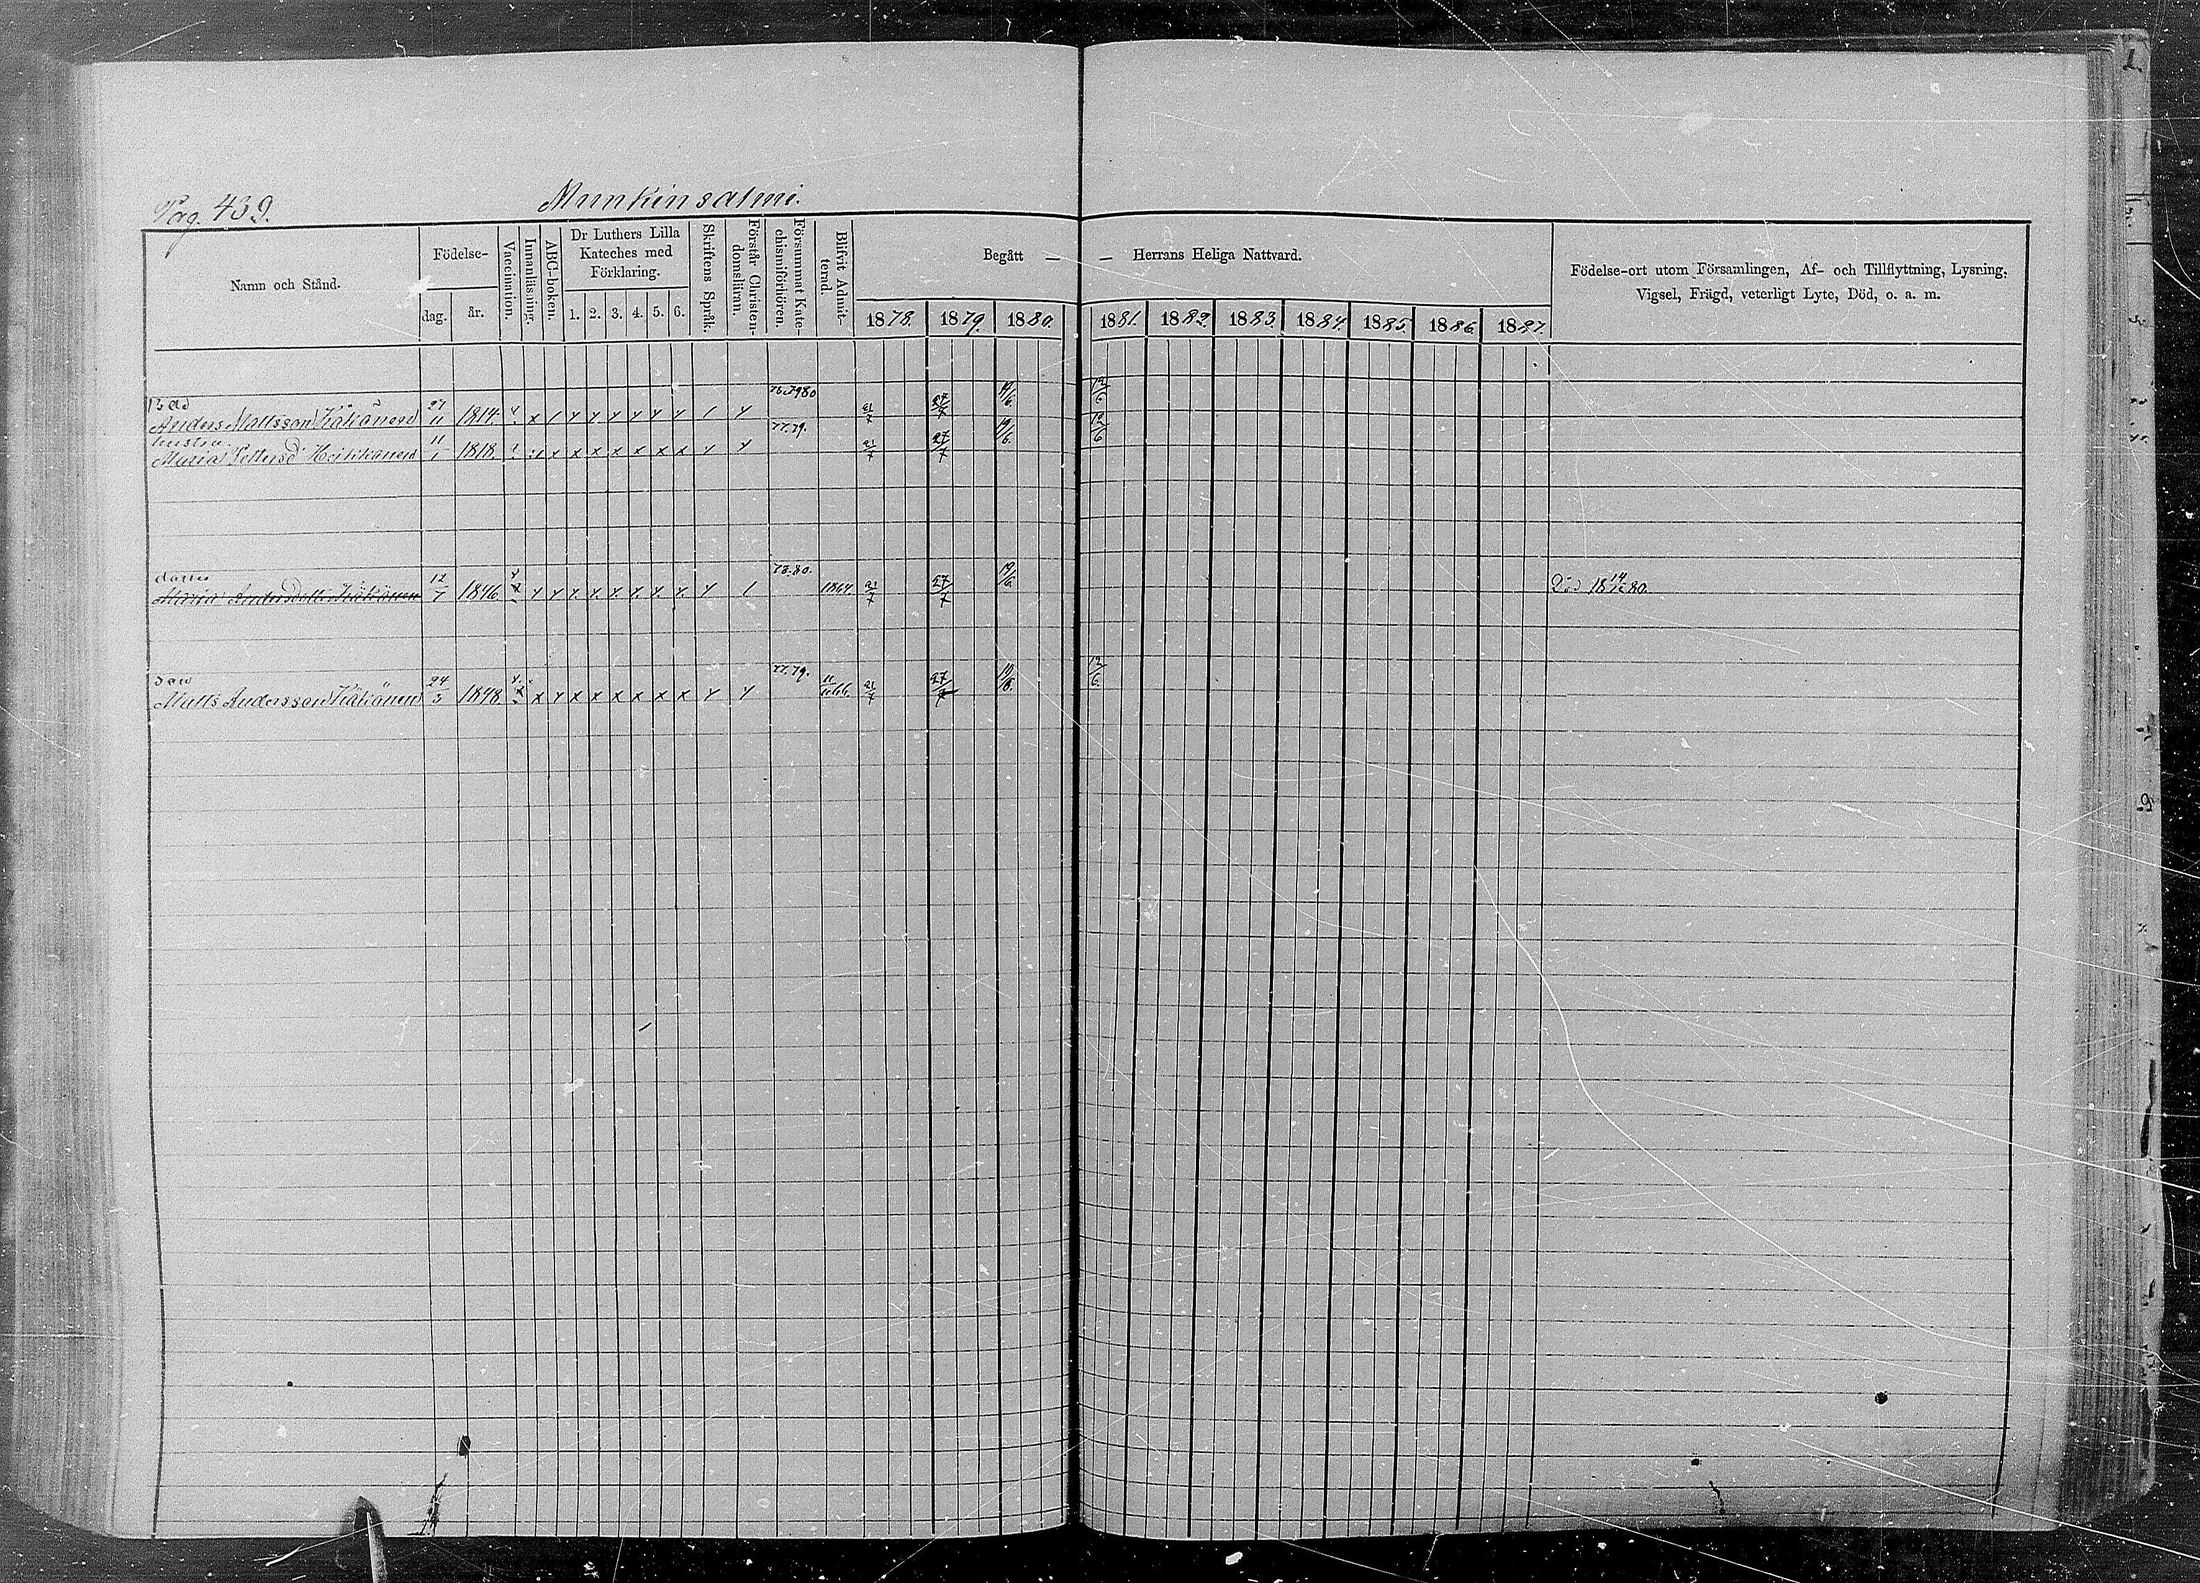 Pag. 439. Munkinsalmi.
Namn och Stånd. Födelse- dag. år. Vaccination. Innanläsning. ABC-boken. Dr Luthers Lilla Kateches med Förklaring. 1. 2. 3. 4. 5. 6. Skriftens Språk. Förstår Christendomsläran. Försummat Katechismiförhören. Blifvit Admitterad. Begått — — Herrans Heliga Nattvard.
Födelse-ort utom Församlingen, Af- och Tillflyttning, Lysning,
Vigsel, Frägd, veterligt Lyte, Död, o. a. m.
1878. 1879. 1880. 1881. 1882. 1883. 1884. 1885. 1886. 1887.
Anders Mattsson Käkönen 27/11 1814. 21/7 27/7 19/6. 12/6
hustru
Maria Pettersd Heikkönen 11/1 1818. 77.79. 21/7 27/7 19/6. 12/6
dotter
Maria Andersdotter Käkönen 12/7 1846. 78.80. 1864. 21/7 27/7 19/6. Död 18 14/12 80.
son
Matts Andersson Käkönen 24/3 1848. 77.79. 21/7 27/7 12/6.